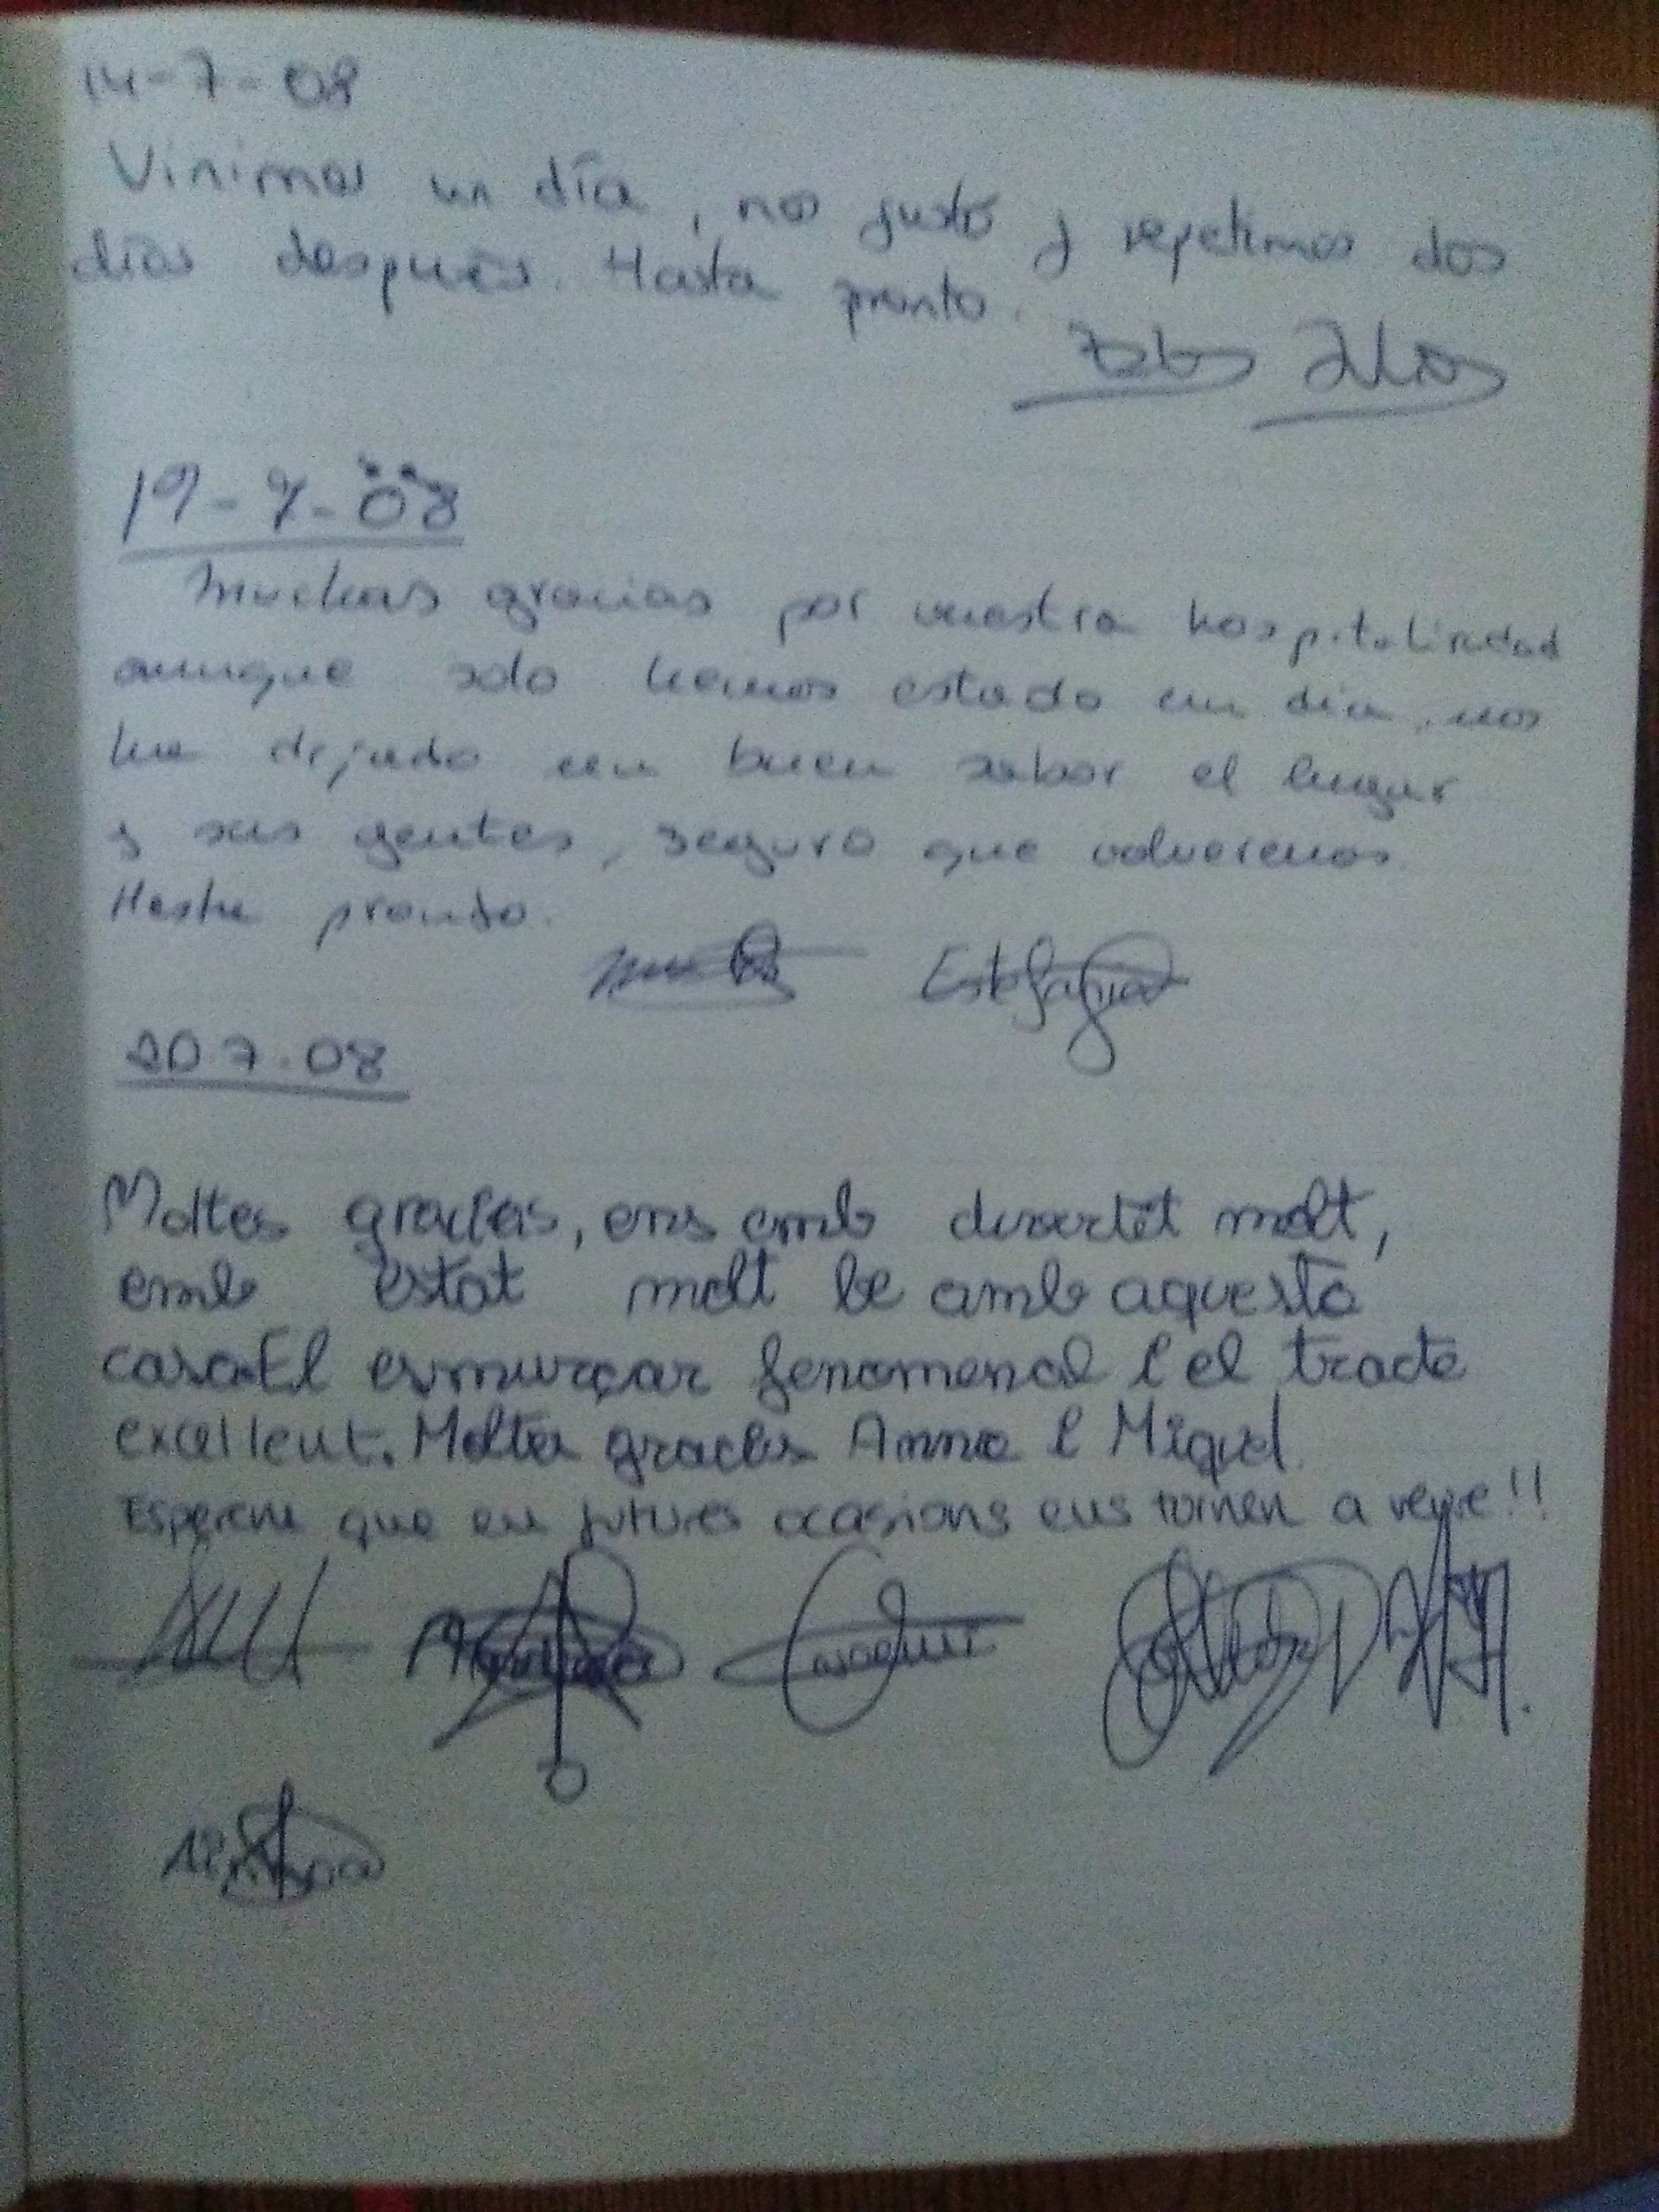 14-7-08
Vinimos un día, nos gustó y repetimos dos
días después. Hasta pronto.
19-7-08
Muchas gracias por vuestra hospitalidad
aunque solo hemos estado un día, nos
ha dejado un buen sabor el lugar
y sus gentes, seguro que volveremos.
Hasta pronto.
Estefania
20.7.08
Moltes gracies, ens emb divertit molt,
emb estat molt be amb aquesta
casa. El esmurçar fenomenal i el tracte
excellent. Moltes gracies Anna i Miquel.
Esperem que en futures ocasions ens tornen a veure!!